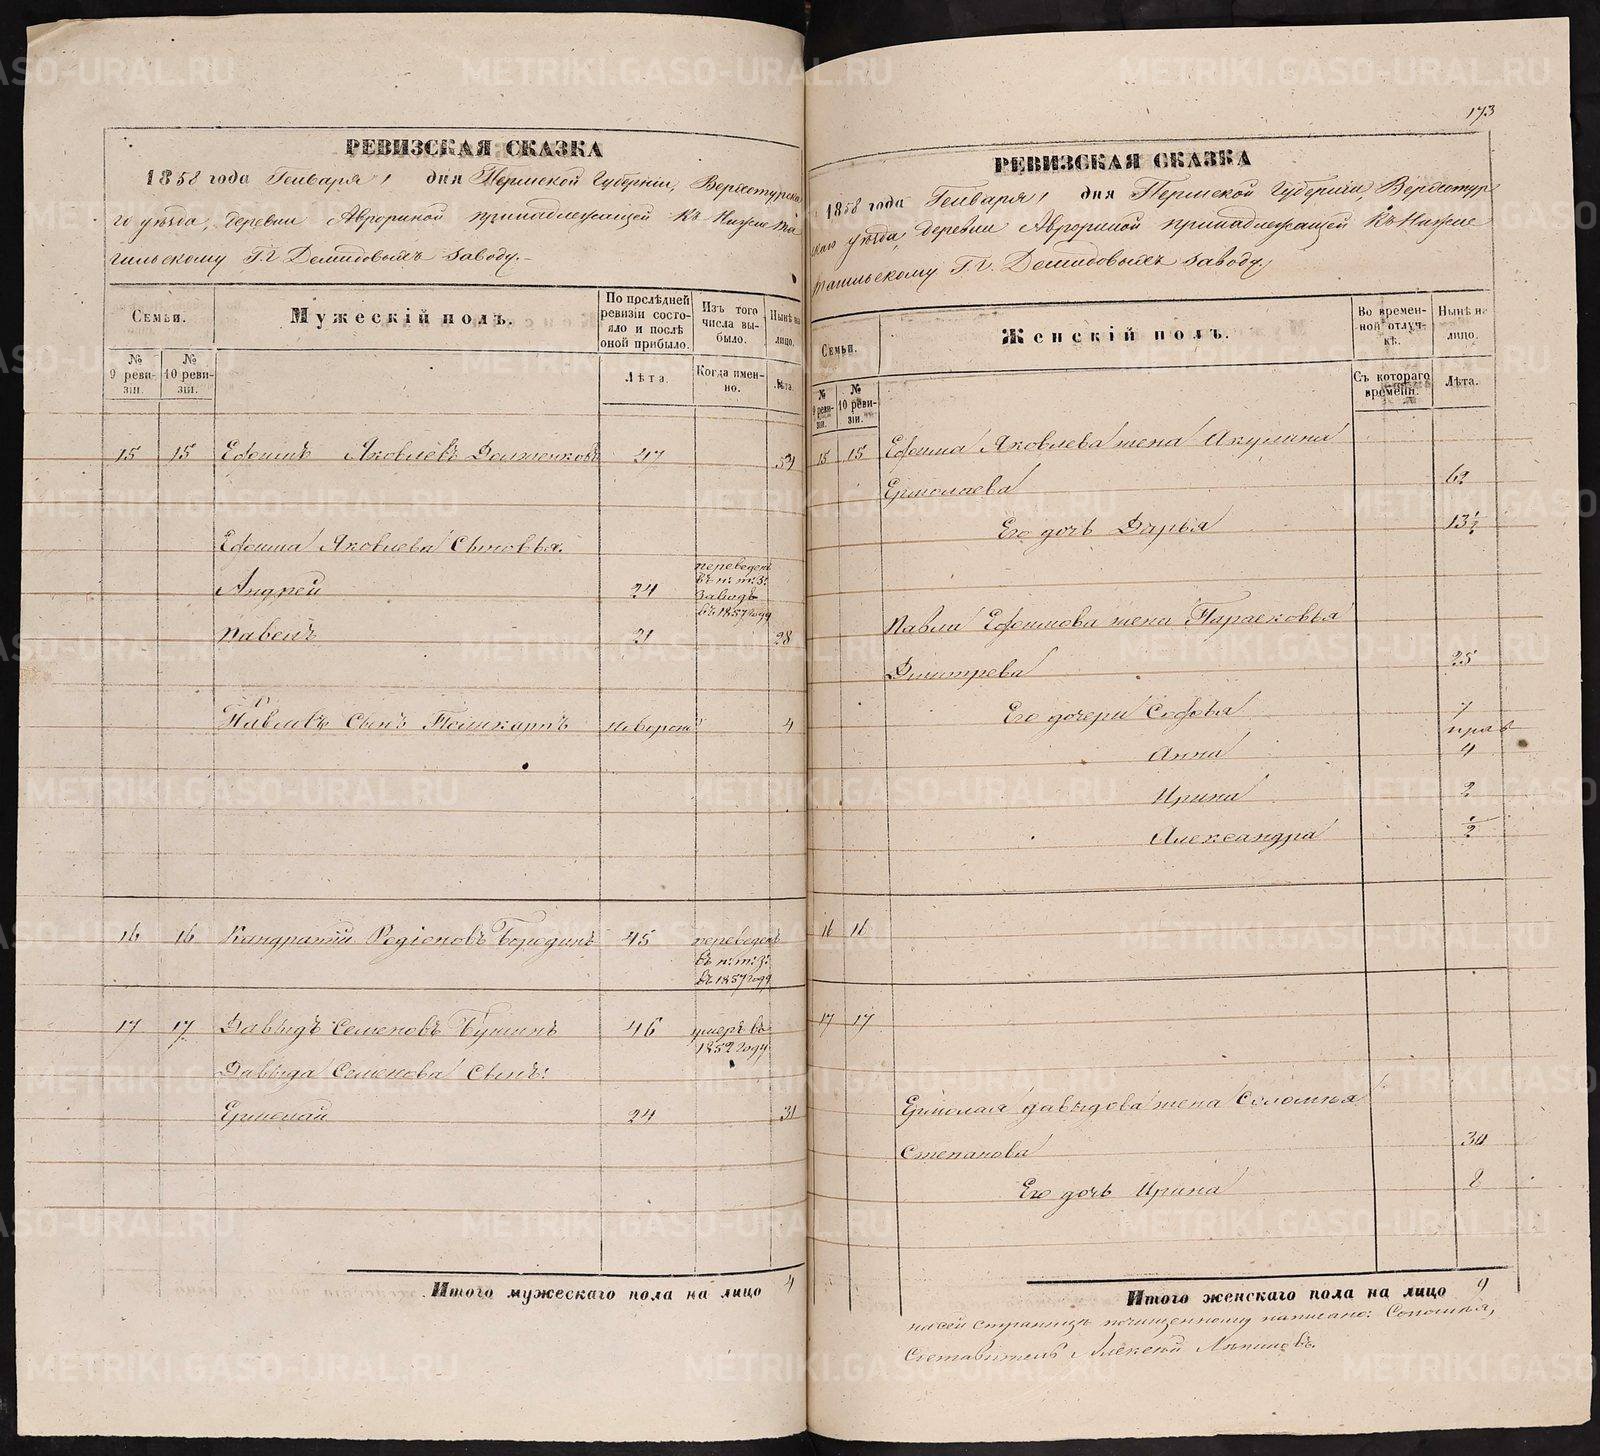 РЕВИЗСКАЯ СКАЗКА
1858 года Генваря 1 дня Пермской Губерніи, Верхотурска
го уѣзда, деревни Аврориной принадлежащей къ Нижне та
гильскому Г.г. Демидовыхъ заводу.
Семьи.
Мужескій полъ.
По послѣдней ревизіи состояло и послѣ оной прибыло.
Изъ того числа выбыло.
Нынѣ на лицо.
№ 9 ревизіи.
№ 10 ревизіи.
Лѣта.
Когда именно.
Лѣта.
15 15 Ефимъ Яковлевъ Долженковъ 47 54
Ефима Яковлева Сыновья.
Андрей 24 переведенъ
въ н: т: з:
заводъ
въ 1857 году
Павелъ 21 28
Павловъ Сынъ новорож 4
16 16 Кандратій Родіоновъ Бородинъ 45 переведенъ
въ н: т: з:
въ 1857 году
17 17 Давыдъ Семеновъ 46 умеръ въ
1852 году
Давыда Семенова Сынъ:
Ермолай 24 31
Итого мужескаго пола на лицо 4
173
РЕВИЗСКАЯ СКАЗКА
1858 года Генваря 1 дня Пермской Губерніи, Верхотур
скаго уѣзда, деревни Аврориной принадлежащей къ Нижне
тагильскому Г.г. Демидовыхъ заводу,
Семьи.
Женскій полъ.
Во временной отлучкѣ.
Нынѣ на лицо.
№ 9 ревизіи.
№ 10 ревизіи.
Съ котораго времени.
Лѣта.
15 15 Ефима Яковлева жена Акулина
Ермолаева 62
Его дочь Дарья 13½
Павла Ефимова жена Парасковья
Дмитрева 25
Его дочери Софья 7
Анна 4
Ирина 2
Александра ½
16 16
17 17
Ермолая давыдова жена Соломия
Степанова 30
Его дочь Ирина 2
Итого женскаго пола на лицо 9
на сей страницѣ почищенному написано: Соломия,
Составитель Алексей
METRIKI.GASO-URAL.RU